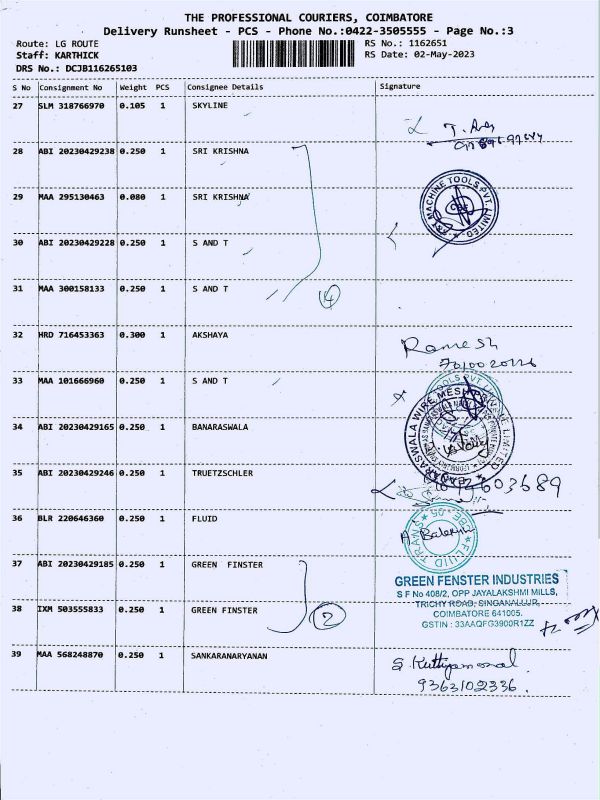 THE PROFESSIONAL COURIERS, COIMBATORE
Delivery Runsheet - PCS - Phone No.:0422-3505555 - Page No.:3
Route: LG ROUTE
RS No.: 1162651
Staff: KARTHICK
RS Date: 02-May-2023
DRS No.: DCJB116265103
S No Consignment No Weight PCS Consignee Details Signature
27 SLM 318766970 0.105 1 SKYLINE
28 ABI 20230429238 0.250 1 SRI KRISHNA
29 MAA 295130463 0.080 1 SRI KRISHNA
MACHINE TOOLS PVT. LIMITED
CBE
30 ABI 20230429228 0.250 1 S AND T
31 MAA 300158133 0.250 1 S AND T
4
32 HRD 716453363 0.300 1 AKSHAYA Ramesh
33 MAA 101666960 0.250 1 S AND T
34 ABI 20230429165 0.250 1 BANARASWALA
35 ABI 20230429246 0.250 1 TRUETZSCHLER
36 BLR 220646360 0.250 1 FLUID
FLUID TRANS CBE-05
37 ABI 20230429185 0.250 1 GREEN FINSTER
GREEN FENSTER INDUSTRIES
S F No 408/2, OPP JAYALAKSHMI MILLS,
TRICHY ROAD, SINGANALLUR,
COIMBATORE 641005.
GSTIN : 33AAQFG3900R1ZZ
38 IXM 503555833 0.250 1 GREEN FINSTER
2
39 MAA 568248870 0.250 1 SANKARANARYANAN
9363102336.